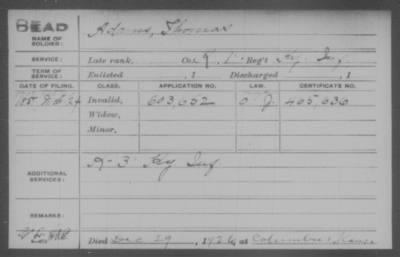 DEAD
NAME OF SOLDIER: Adams, Thomas
SERVICE: Late rank, Co. Reg't Ky Inf
TERM OF SERVICE: Enlisted , 1 Discharged , 1
DATE OF FILING. CLASS. APPLICATION NO. LAW. CERTIFICATE NO.
Invalid, 603,602 465,636
Widow,
Minor,
ADDITIONAL SERVICES: 3 Ky Inf
REMARKS:
Died Dec 29, 1926, at Columbus, Kansas